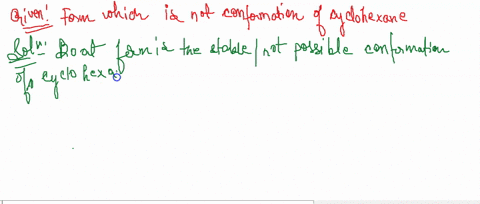 Given: Form which is not conformation of syclohexane
Soln: Boat form is the stable/not possible conformation
of cyclohexa